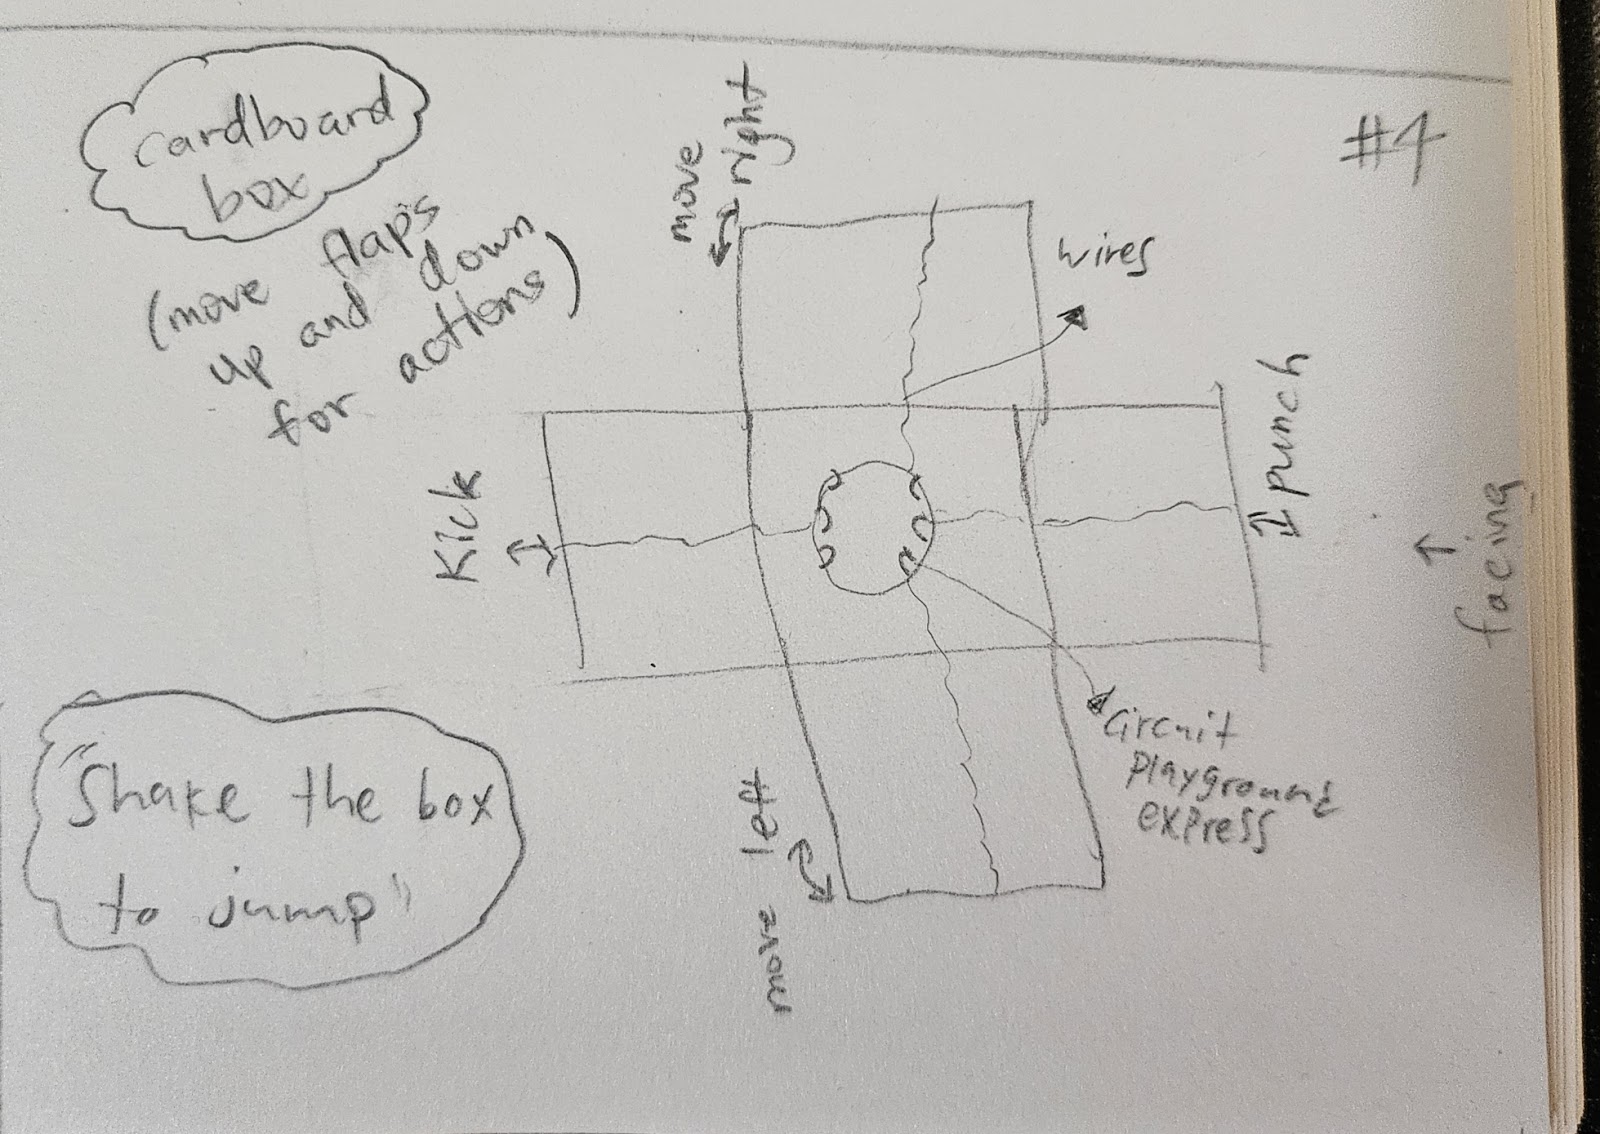 #4
cardboard
box
(move flaps
up and down
for actions)
move
right
wires
Kick
punch
facing
"Shake the box
to jump"
move left
Circuit
playground
express